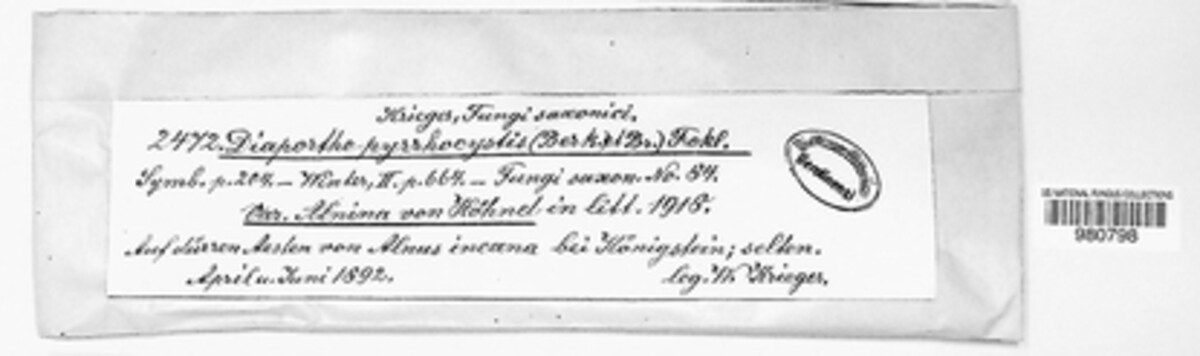 Krieger, Fungi saxonici.
2472. Diaporthe pyrrhocystis (Berk. et Br.) Fckl.
Symb. p. 204. – Winter, II. p. 664. – Fungi saxon. No. 84.
var. Alnina von Höhnel in litt. 1918.
Auf dürren Aesten von Alnus incana bei Königstein; selten.
April u. Juni 1892.
leg. W. Krieger.
US NATIONAL FUNGUS COLLECTIONS
980798